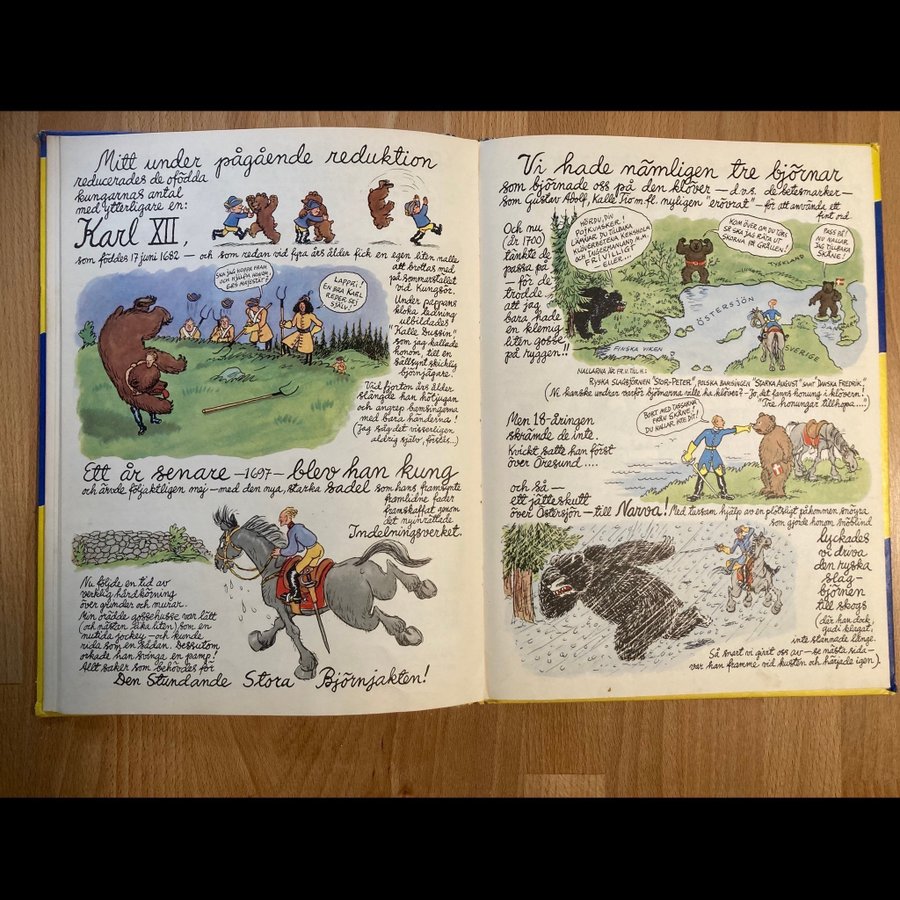 Mitt under pågående reduktion
reducerades de ofödda
kungarnas antal
med ytterligare en:
Karl XII,
som föddes 17 juni 1682 — och som redan vid fyra års ålder fick en egen liten nalle
att brottas med
på sommarstället
vid Kungsör.
Under pappans
kloka ledning
utbildades
"Kalle Dussin"
som jag kallade
honom, till en
sällsynt skicklig
björnjägare.
SKA JAG HOPPA FRAM
OCH HJÄLPA HONOM,
ERS MAJESTÄT?
LAPPRI!
EN BRA KARL
REDER SEJ
SJÄLV!
Vid fjorton års ålder
slängde han hötjugan
och angrep bamsingarna
med bara händerna!
(Jag såg det visserligen
aldrig själv, förstås...)
Ett år senare —1697— blev han kung
och ärvde följaktligen mej — med den nya, starka sadel som hans framsynte
framlidne fader
framskaffat genom
det nyinrättade
Indelningsverket.
Nu följde en tid av
verklig hårdkörning
över grindar och murar.
Min orädde gossehusse var lätt
(och nästan lika liten) som en
nutida jockey — och kunde
rida som en sådan. Dessutom
orkade han svinga en pamp!
Allt saker som behövdes för
Den Stundande Stora Björnjakten!
Vi hade nämligen tre björnar
som björnade oss på den klöver — d.v.s. de betesmarker —
som Gustav Adolf, Kalle Tio m.fl. nyligen "erövrat" — för att använda ett
fint ord.
Och nu
(år 1700)
tänkte de
passa på
— för de
trodde
att jag
bara hade
en klemig
liten gosse
på ryggen!!
HÖRDU, DU
POJKVASKER!
LÄMNAR DU TILLBAKA
KLÖVERBETENA KEXHOLM
OCH INGERMANLAND M.M.
FRIVILLIGT
— ELLER...
KOM ÖVER OM DU TÖRS
SÅ SKA JAG RÄTA UT
SKORNA PÅ GRÅLLEN!
PASS PÅ!
NU NALLAR
JAG TILLBAKA
SKÅNE!
TYSKLAND
ÖSTERSJÖN
FINSKA VIKEN
SVERIGE
NALLARNA ÄR FR.V. TILL H.:
RYSKA SLAGBJÖRNEN "STOR-PETER", POLSKA BAMSINGEN "STARKA AUGUST" SAMT DANSKA FREDRIK!
(Ni kanske undrar varför björnarna ville ha klöver? — Jo, det fanns honung i klövern!
Tre honungar tillhopa...!)
Men 18-åringen
skrämde de inte.
Kvickt satte han först
över Öresund....
BORT MED TASSARNA
FRÅN SKÅNE!
DU NALLAR INTE DIT!
och så —
ett jätteskutt
över Östersjön — till Narva! Med tassam hjälp av en plötsligt påkommen snöyra
som gjorde honom snöblind
lyckades
vi driva
den ryska
slag-
björnen
till skogs
(där han dock,
gudi klagat,
inte stannade länge.
Så snart vi givit oss av — se nästa sida —
var han framme vid kusten och härjade igen).